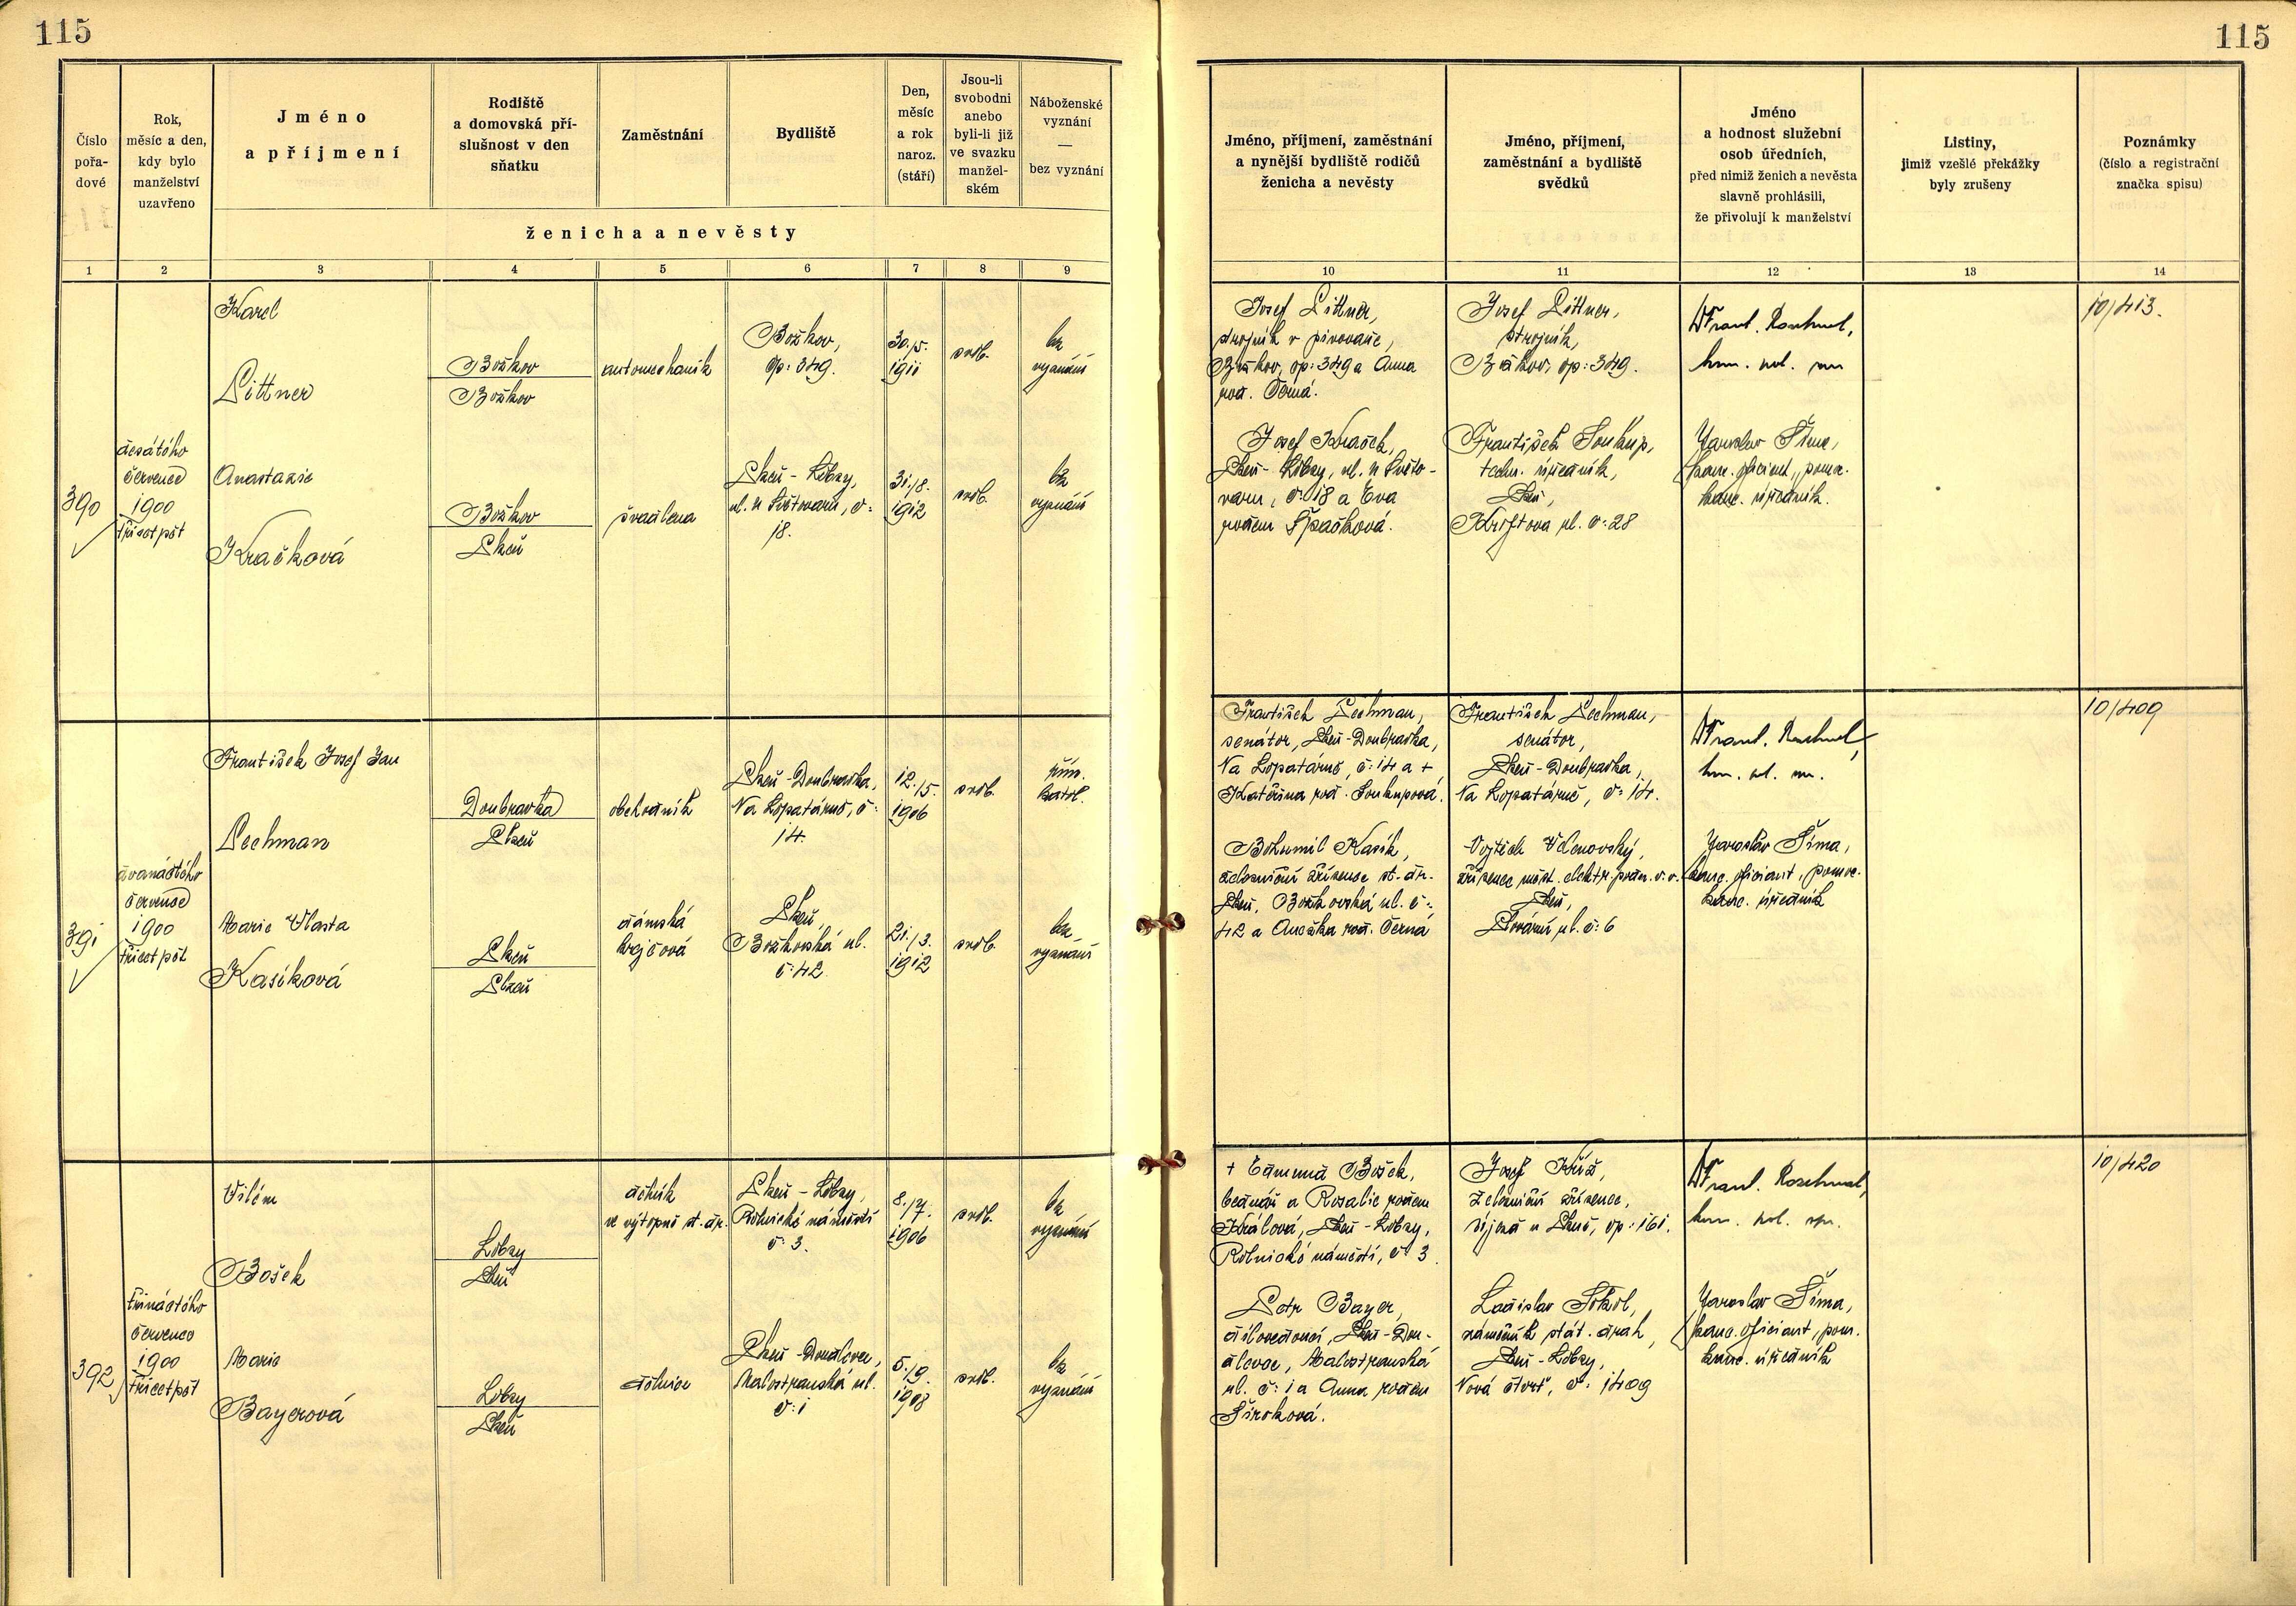 115
115
Číslo
pořa-
dové
Rok,
měsíc a den,
kdy bylo
manželství
uzavřeno
Jméno
a příjmení
Rodiště
a domovská pří-
slušnost v den
sňatku
Zaměstnání
Bydliště
Den,
měsíc
a rok
naroz.
(stáří)
Jsou-li
svobodni
anebo
byli-li již
ve svazku
manžel-
ském
Náboženské
vyznání
—
bez vyznání
ženicha a nevěsty
Jméno, příjmení, zaměstnání
a nynější bydliště rodičů
ženicha a nevěsty
Jméno, příjmení,
zaměstnání a bydliště
svědků
Jméno
a hodnost služební
osob úředních,
před nimiž ženich a nevěsta
slavně prohlásili,
že přivolují k manželství
Listiny,
jimiž vzešlé překážky
byly zrušeny
Poznámky
(číslo a registrační
značka spisu)
1 2 3 4 5 6 7 8 9 10 11 12 13 14
390
desátého
července
1900
třicetpět
Karel
Littner
Božkov
Božkov
automechanik
Božkov,
čp: 349.
30./5.
1911
svob.
bez
vyznání
Anastazie
Kračková
Božkov
Plzeň
švadlena
Plzeň - Lobzy,
ul. u Světovaru, č:
18.
31./8.
1912
svob.
bez
vyznání
Josef Littner,
strojník v pivovaře,
Božkov, čp: 349 a Anna
roz. Černá.
Josef Kraček,
Plzeň - Lobzy, ul. u Světo-
varu, č: 18 a Eva
rozem Špačková.
Josef Littner,
strojník,
Božkov, čp: 349.
František Soukup,
techn. úředník,
Plzeň,
Křiftova ul. č: 28
Jaroslav Šíma,
kanc. oficiant, pomoc.
kanc. úředník.
10/413.
391
dvanáctého
července
1900
třicetpět
František Josef Jan
Lechman
Doubravka
Plzeň
obchodník
Plzeň - Doubravka,
Na Lopatárně, č:
14.
12./5.
1906
svob.
řím.
katol.
Marie Vlasta
Kasíková
Plzeň
Plzeň
dámská
krejčová
Plzeň,
Božkovská ul.
č: 42
21./3.
1912
svob.
bez
vyznání
František Lechman,
senátor, Plzeň - Doubravka,
Na Lopatárně, č: 14 a +
Kateřina roz. Soukupová.
Bohumil Kasík,
železniční zřízenec st. dr.
Plzeň, Božkovská ul. č:
42 a Anežka roz. Černá
František Lechman,
senátor,
Plzeň - Doubravka,
Na Lopatárně, č: 14.
Vojtěch
zřízenec měst. elektr. podn. v. v.
Plzeň,
ul. č: 6
Jaroslav Šíma,
kanc. oficiant, pomoc.
kanc. úředník
10/409
392
třináctého
července
1900
třicetpět
Vilém
Bošek
Lobzy
Plzeň
dělník
ve výtopně st. dr.
Plzeň - Lobzy,
Rolnické náměstí
č: 3.
8./7.
1906
svob.
bez
vyznání
Marie
Bayerová
Lobzy
Plzeň
dělnice
Plzeň - Doudlevce,
Malostranská ul.
č: 1
5./9.
1908
svob.
bez
vyznání
+ Edmund Bošek,
bednář a Rosalie rozem
Králová, Plzeň - Lobzy,
Rolnické náměstí, č: 3.
Petr Bayer,
dílovedoucí, Plzeň - Dou-
dlevce, Malostranská
ul. č: 1 a Anna rozem
Široková.
Josef Kříž,
železniční zřízenec,
u Plzně, čp: 161.
Ladislav Sokol,
zámečník stát. drah,
Plzeň - Lobzy,
Nová čtvrť, č: 1409
Jaroslav Šíma,
kanc. oficiant, pom.
kanc. úředník
10/420